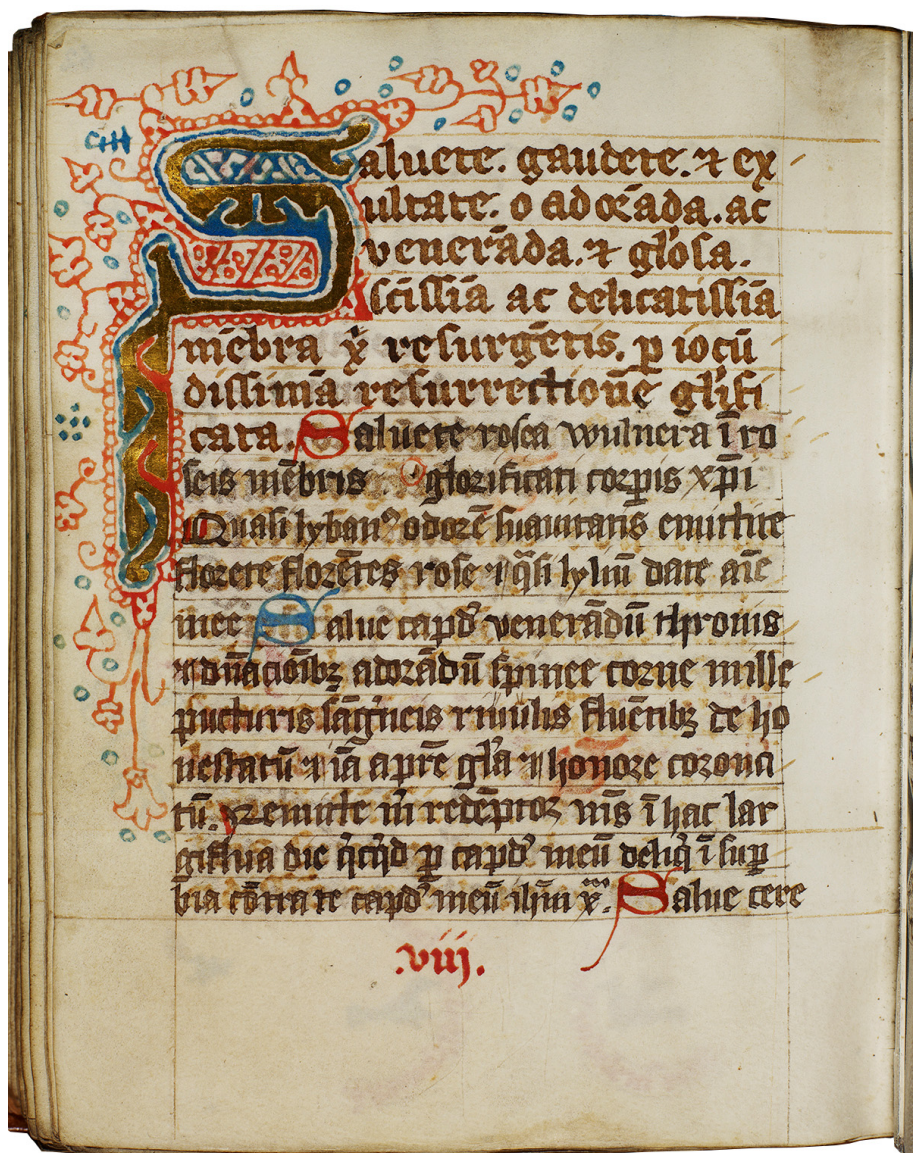 Saluete. gaudete. ⁊ ex
ultate. o adorāda. ac
venerāda. ⁊ gl'osa.
scīssīa ac delicatissīa
mēbra xp̄i resurgētis. ꝑ iocū
dissimā resurrectionē
cata. Saluete rosea wulnera ī ro
seis mēbris. O glorificati corꝑis xp̄i
Quasi lyban⁹ odorē suauitatis emittite
florete florētes rose ⁊ q̄si lyliū date aīe
mee Salue capđ venerādū thronis
⁊ dn̄acioībꝫ adorādū spinee corne mille
pūcturis sāgneis riuulis fluētibꝫ de ho
nestatū ⁊ iā a pr̄e gl'a ⁊ honore corona
tū. Remitte m̄ redēptor mūs ī hac lar
giflua die ꝑ capđ meū ī suꝑ
bia cōtra te capđ meū ih̄m xp̄m. Salue cere
.viij.